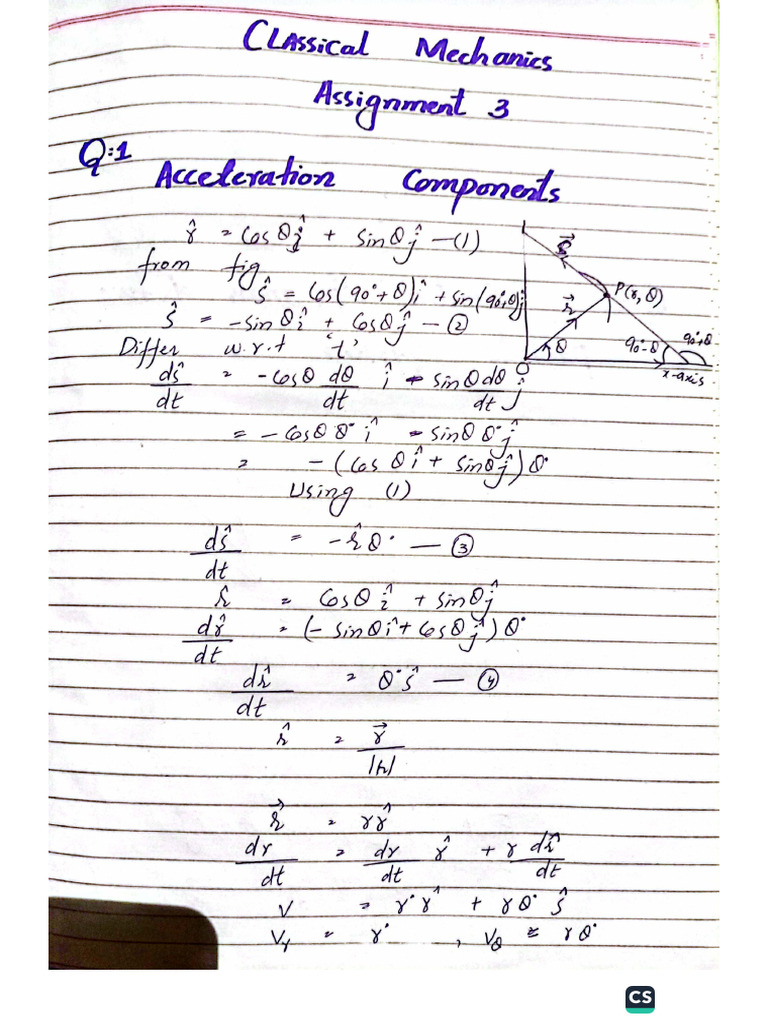 Classical Mechanics
Assignment 3
Q:1
Acceleration Components
r̂ = Cosθ î + Sinθ ĵ —(1)
from fig
ŝ = Cos(90°+θ)î + Sin(90°+θ)ĵ
ŝ = -Sinθ î + Cosθ ĵ — ②
Differ w.r.t 't'
dŝ/dt = -Cosθ dθ/dt î - Sinθ dθ/dt ĵ
= -Cosθ θ˙ î - Sinθ θ˙ ĵ
= -(Cosθ î + Sinθ ĵ)θ˙
Using (1)
dŝ/dt = -r̂ θ˙ — ③
r̂ = Cosθ î + Sinθ ĵ
dr̂/dt = (-Sinθ î + Cosθ ĵ)θ˙
dr̂/dt = θ˙ ŝ — ④
r̂ = r⃗/|r|
r⃗ = r r̂
dr/dt = dr/dt r̂ + r dr̂/dt
V = r˙ r̂ + r θ˙ ŝ
Vr = r˙ , Vθ = r θ˙
P(r, θ)
r⃗
θ
90°-θ
90°+θ
O
x-axis
CS